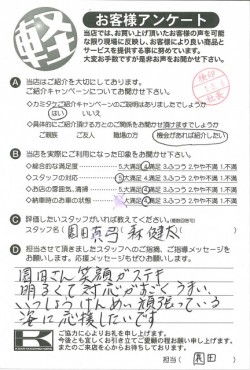 軽
お客様アンケート
当店では、お買い上げ頂いたお客様の声を可能
な限り現場に反映し、お客様により良い商品と
サービスを提供する事に努めています。
大変お手数ですが是非お声をお聞かせ下さい。
A 当店はご紹介を大切にしております。
ご紹介キャンペーンについてお聞かせ下さい。
◇カミタケご紹介キャンペーンのご説明はありましたでしょうか
はい いいえ
◇具体的にご紹介頂ける方とのご関係をお聞かせ頂けますでしょうか
ご親族 ご友人 職場の方 機会があれば紹介したい
B 当店を実際にご利用になった印象をお聞かせ下さい。
◇総合的な満足度 5大満足 4.満足 3.ふつう 2.やや不満 1.不満
◇スタッフの対応 5大満足 4.満足 3.ふつう 2.やや不満 1.不満
◇お店の雰囲気、清掃 5大満足 4.満足 3.ふつう 2.やや不満 1.不満
◇納車時のお車の状態 5大満足 4.満足 3.ふつう 2.やや不満 1.不満
C 評価したいスタッフがいれば教えてください。(複数回答可)
スタッフ名( 園田真弓 森健太 )
D 担当させて頂きましたスタッフへのご指摘、ご指導メッセージを
お願いします。応援メッセージもぜひお願いします。
園田さん笑顔がステキ
明るくて対応がおくうまい。
いっしょうけんめい頑張っている
姿に応援したいです
K
ご協力に心よりお礼を申し上げます。
今後とも宜しくお引き立てご愛顧の程お願い申し上げます。
またのご来店を心からお待ちしております。
担当( 園田 )